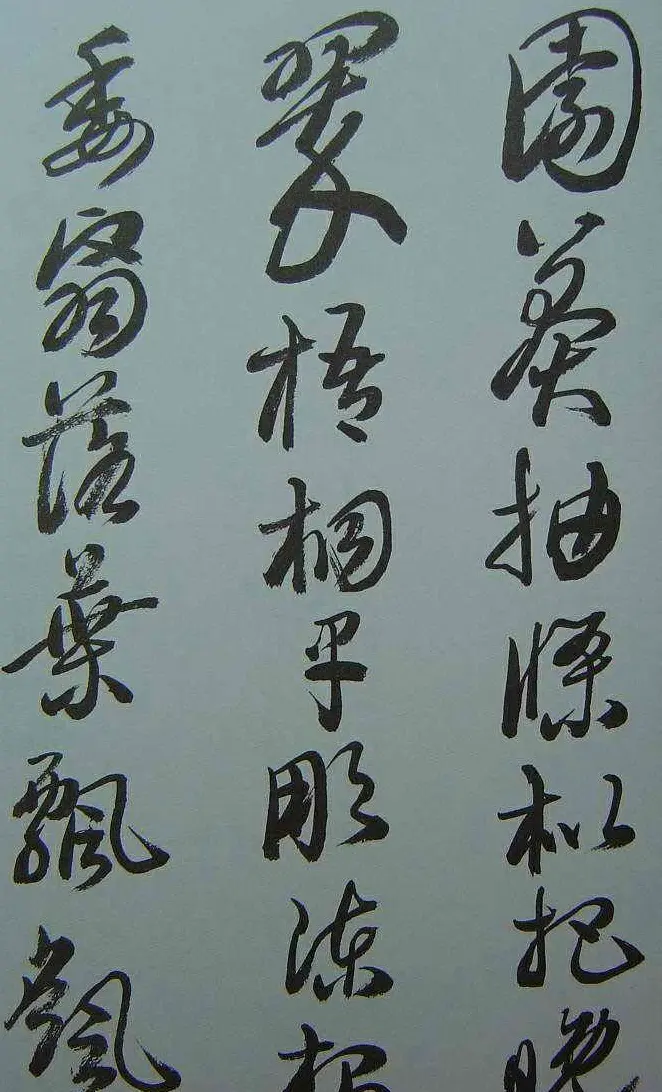 園莽抽條枇杷晚
翠梧桐早彫陳根
委翳落葉飄颻